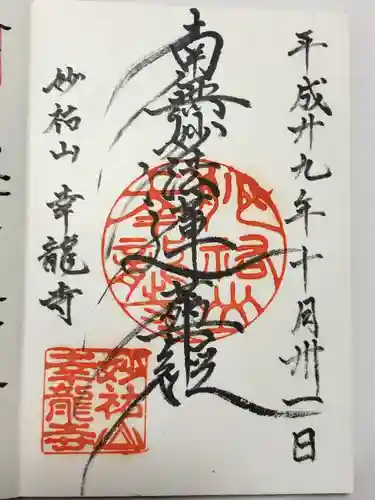 平成廿九年十月卅一日
南無妙法蓮華経
妙祐山 幸龍寺
妙祐山
幸龍寺